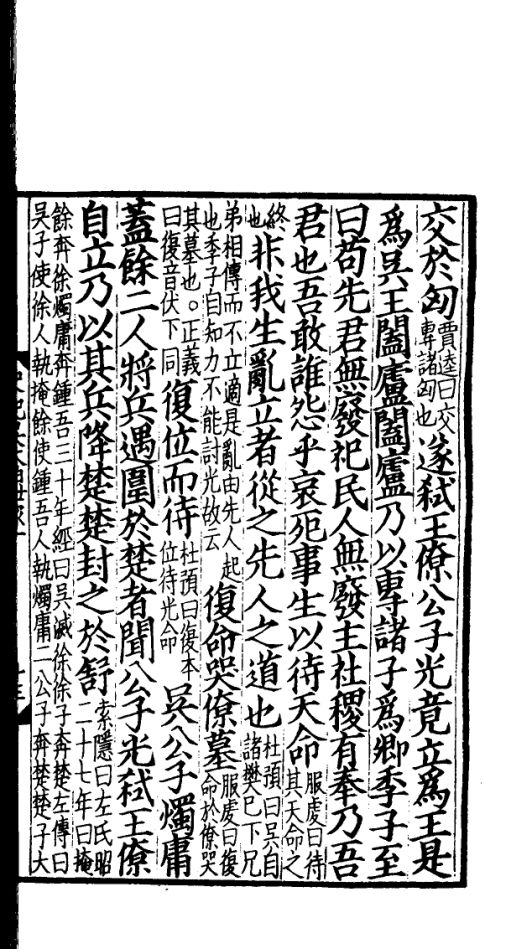 交於匈賈逵曰交專諸匈也遂弑王僚公子光竟立爲王是
爲吳王闔廬闔廬乃以專諸子爲卿季子至
曰苟先君無廢祀民人無廢主社稷有奉乃吾
君也吾敢誰怨乎哀死事生以待天命服虔曰待其天命之
終也非我生亂立者從之先人之道也杜預曰吳自諸樊已下兄
弟相傳而不立適是亂由先人起也季子自知力不能討光故云復命哭僚墓服虔曰復命於僚哭
其墓也○正義曰復音伏下同復位而待杜預曰復本位待光命吳公子燭庸
蓋餘二人將兵遇圍於楚者聞公子光弑王僚
自立乃以其兵降楚楚封之於舒索隱曰左氏昭二十七年曰掩
餘奔徐燭庸奔鍾吾三十年經曰吳滅徐徐子奔楚左傳曰吳子使徐人執掩餘使鍾吾人執燭庸二公子奔楚楚子大